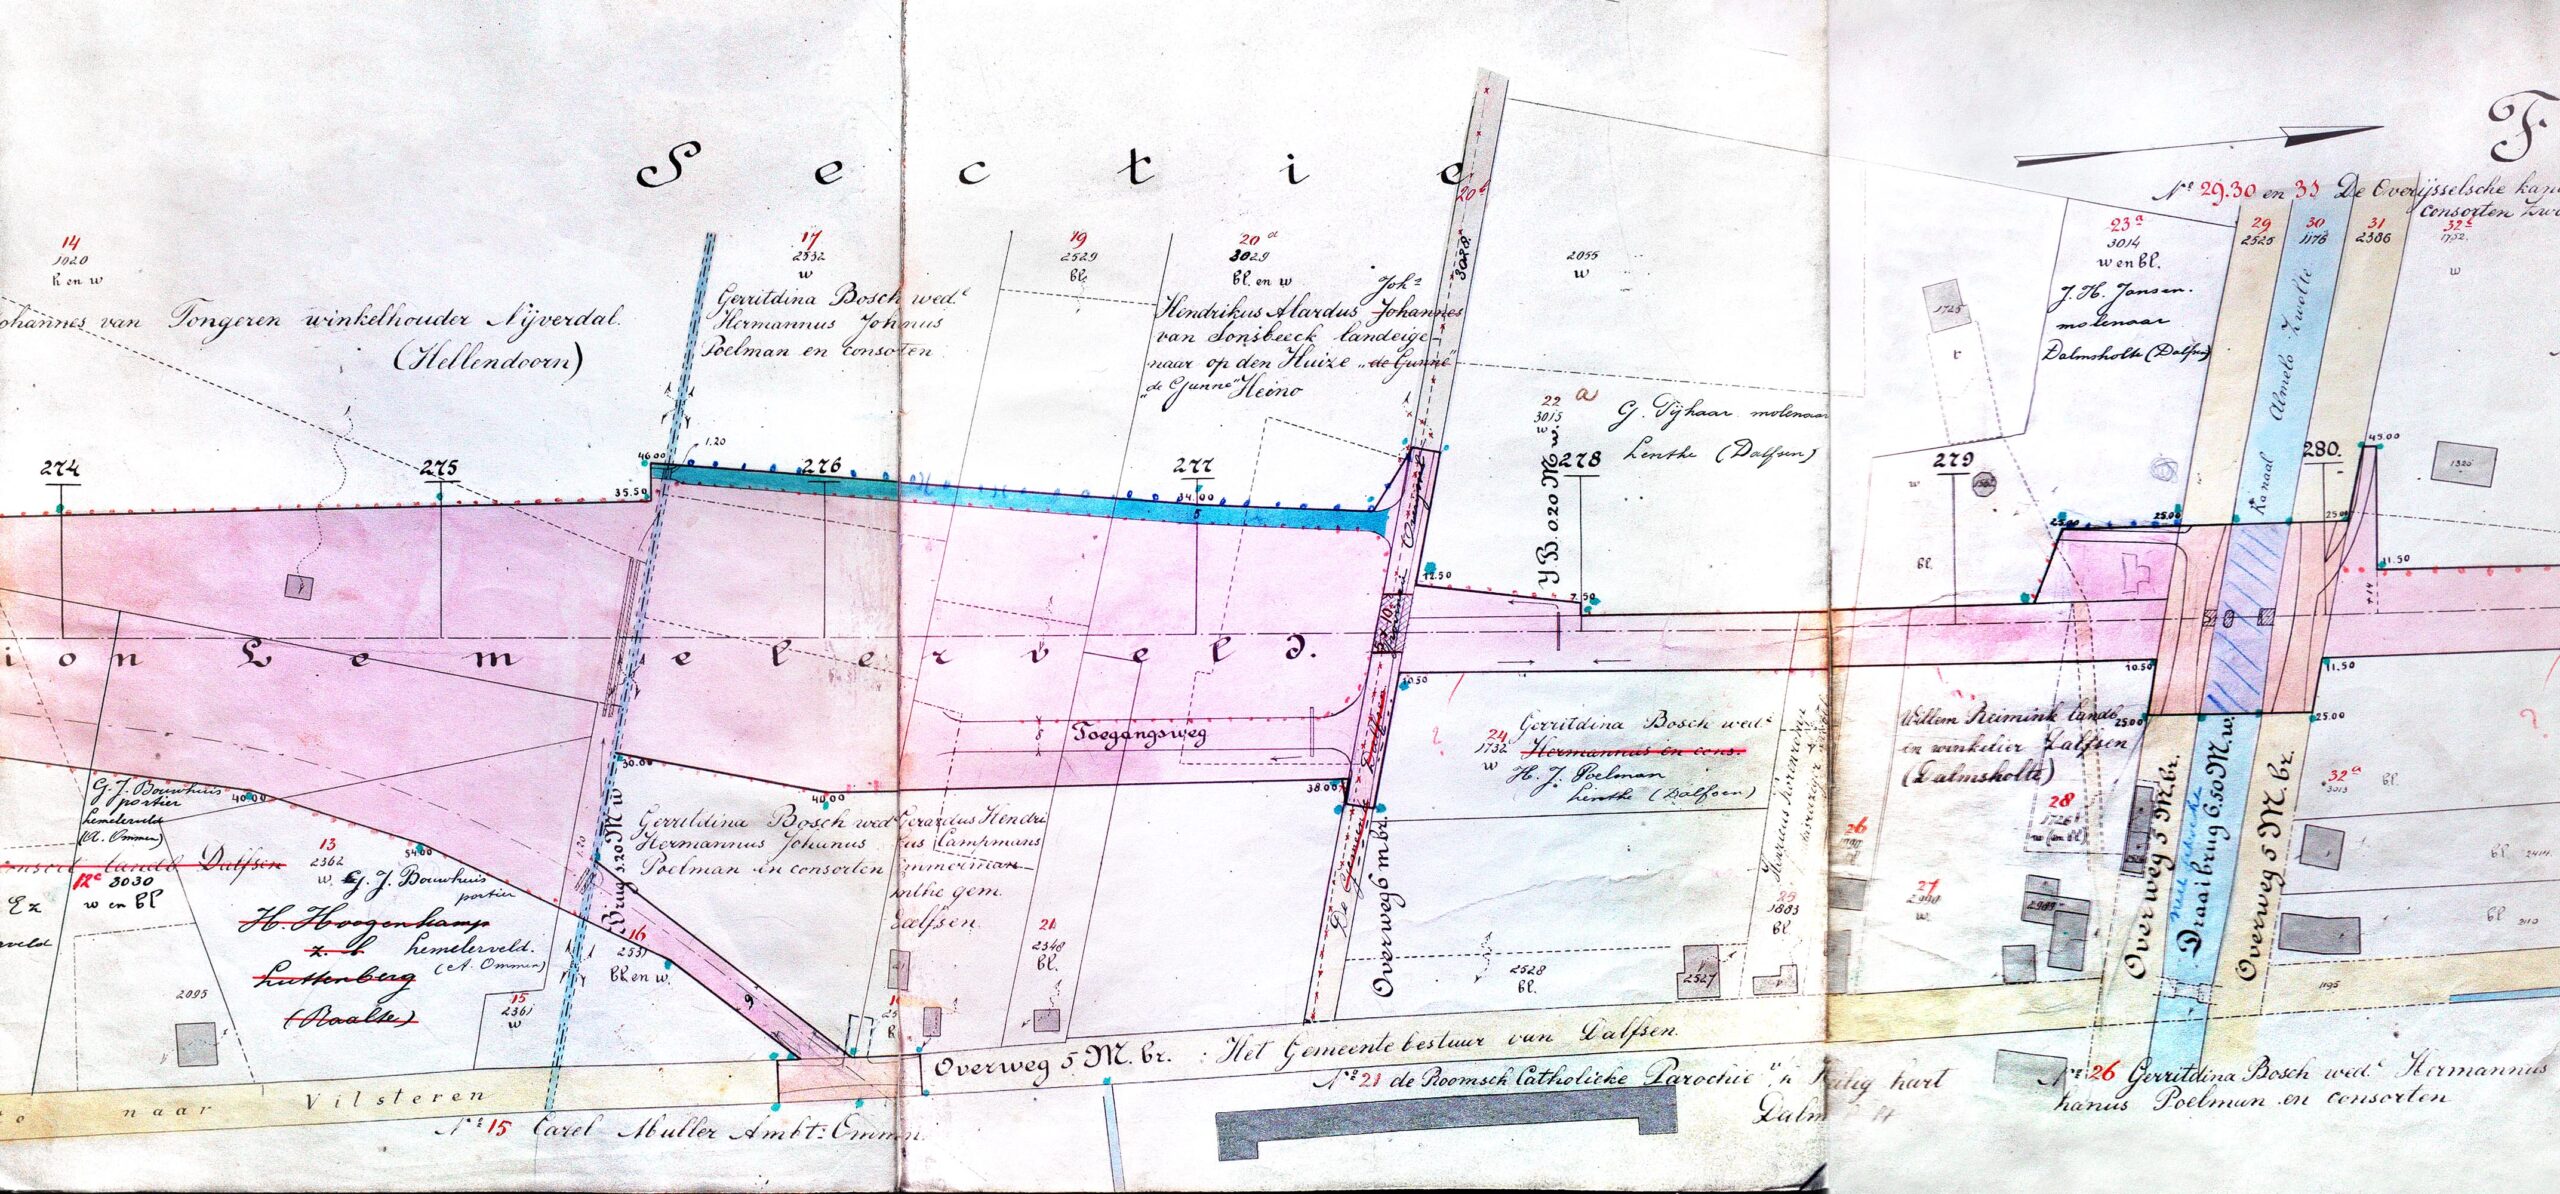 Sectie F
14
1020
h en w
Johannes van Tongeren winkelhouder Nijverdal.
(Hellendoorn)
17
2532
w
Gerritdina Bosch wed.e
Hermannus Johnnus
Poelman en consorten
19
2529
bl.
20 a
3029
bl. en w
Joh.s
Hendrikus Alardus Johannes
van Sonsbeeck landeige-
naar op den Huize „de Gunne"
„de Gunne" Heino
3028
2055
w
22 a
3015
w.
G. Tijhaar molenaar
Lenthe (Dalfsen)
23 a
3014
w en bl.
J. H. Jansen.
molenaar
Dalmsholte (Dalfsen)
1725
No 29.30 en 33 De Overijsselsche kan
consorten Zwo
29
2525
30
1176
31
2386
32 b
1752.
w
Kanaal Almelo Zwolte
1320
274
275
276
277
278
279
280.
46.00
35.50
1.20
34.00
5
12.50
7.50
Y B. 0.20 M w.
25.00
25.00
25.00
45.00
11.50
bl.
ion Lemelerveld.
Toegangsweg
10.50
10.50
11.50
25.00
25.00
30.00
40.00
40.00
38.00
54.00
G. J. Bouwhuis
portier
Lemelerveld
(A. Ommen)
landb Dalfsen
12c 3030
w en bl
13
2362
w.
G. J. Bouwhuis
portier
H. Hoogenkamp
z. b. Lemelerveld.
(A. Ommen)
Luttenberg
(Raalte)
2095
15
2361
w
Brug 3.20 M w
Gerritdina Bosch wed
Hermannus Johunus
Poelman en consorten
16
2531
bl. en w.
9
Gerardus Hendri
cus Campmans
timmerman
Dalfsen.
21
2348
bl.
Overweg 6 M br.
24
1732
w
Gerritdina Bosch wed.e
Hermannus en cons.
H. J. Poelman
Lenthe (Dalfsen)
2528
bl.
2527
25
1883
bl.
26
27
w.
Willem Reimink landb.
in winkelier Dalfsen
(Dalmsholte)
28
1726
2989
Overweg 5 M. br.
Draaibrug 6.50 M. w.
Overweg 5 M. br.
32 a
3013
bl
bl 2414
bl
1195
naar Vilsteren
Overweg 5 M. br. : Het Gemeentebestuur van Dalfsen.
No 15 Carel Muller Ambt: Ommen.
No 21 de Roomsch Catholieke Parochie „'t Heilig hart
Dalm
No 26 Gerritdina Bosch wed.e Hermannus
hanus Poelman en consorten